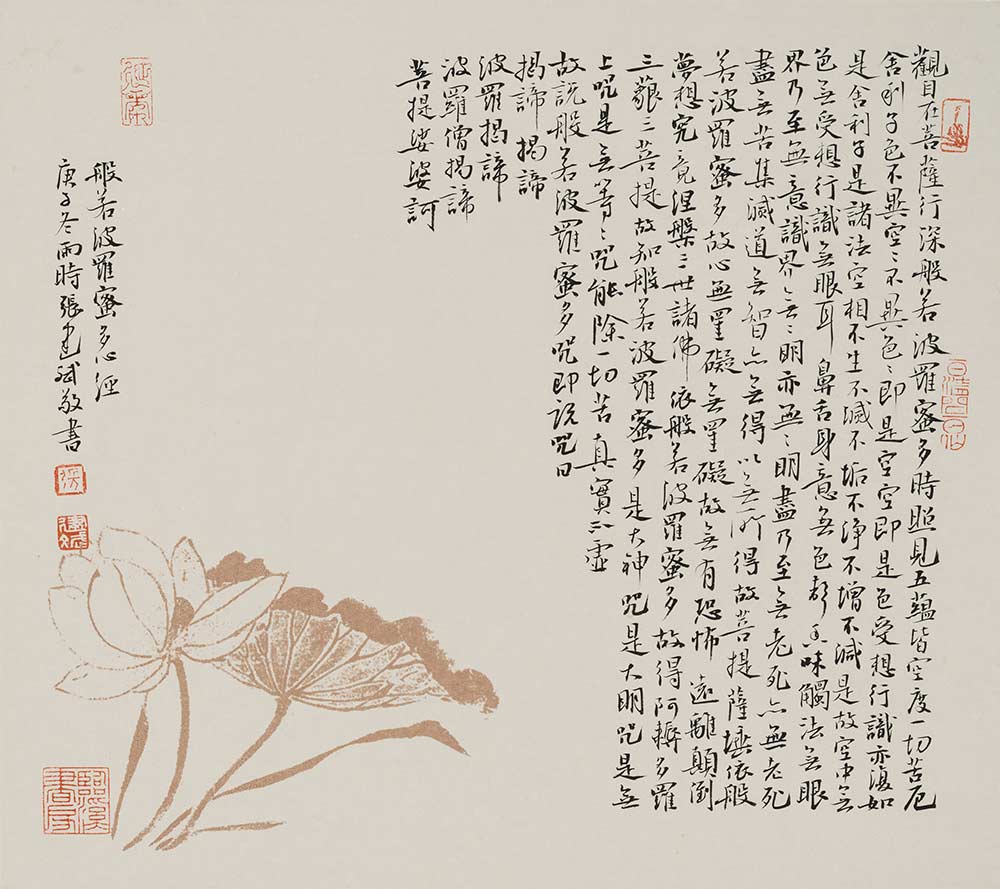 觀自在菩薩行深般若波羅蜜多時照見五蘊皆空度一切苦厄
舍利子色不異空〻不異色〻即是空空即是色受想行識亦復如
是舍利子是諸法空相不生不滅不垢不淨不增不減是故空中无
色无受想行識無眼耳鼻舌身意无色聲香味觸法无眼
界乃至無意識界无〻明亦無〻明盡乃至无老死亦無老死
盡无苦集滅道无智亦无得以无所得故菩提薩埵依般
若波羅蜜多故心無罣礙無罣礙故无有恐怖遠離顛倒
夢想究竟涅槃三世諸佛依般若波羅蜜多故得阿耨多羅
三藐三菩提故知般若波羅蜜多是大神咒是大明咒是无
上咒是无等〻咒能除一切苦真實不虛
故説般若波羅蜜多咒即説咒曰
揭諦揭諦
波羅揭諦
波羅僧揭諦
菩提娑婆訶
般若波羅蜜多心經
庚子冬雨時張建斌敬書
張
建斌